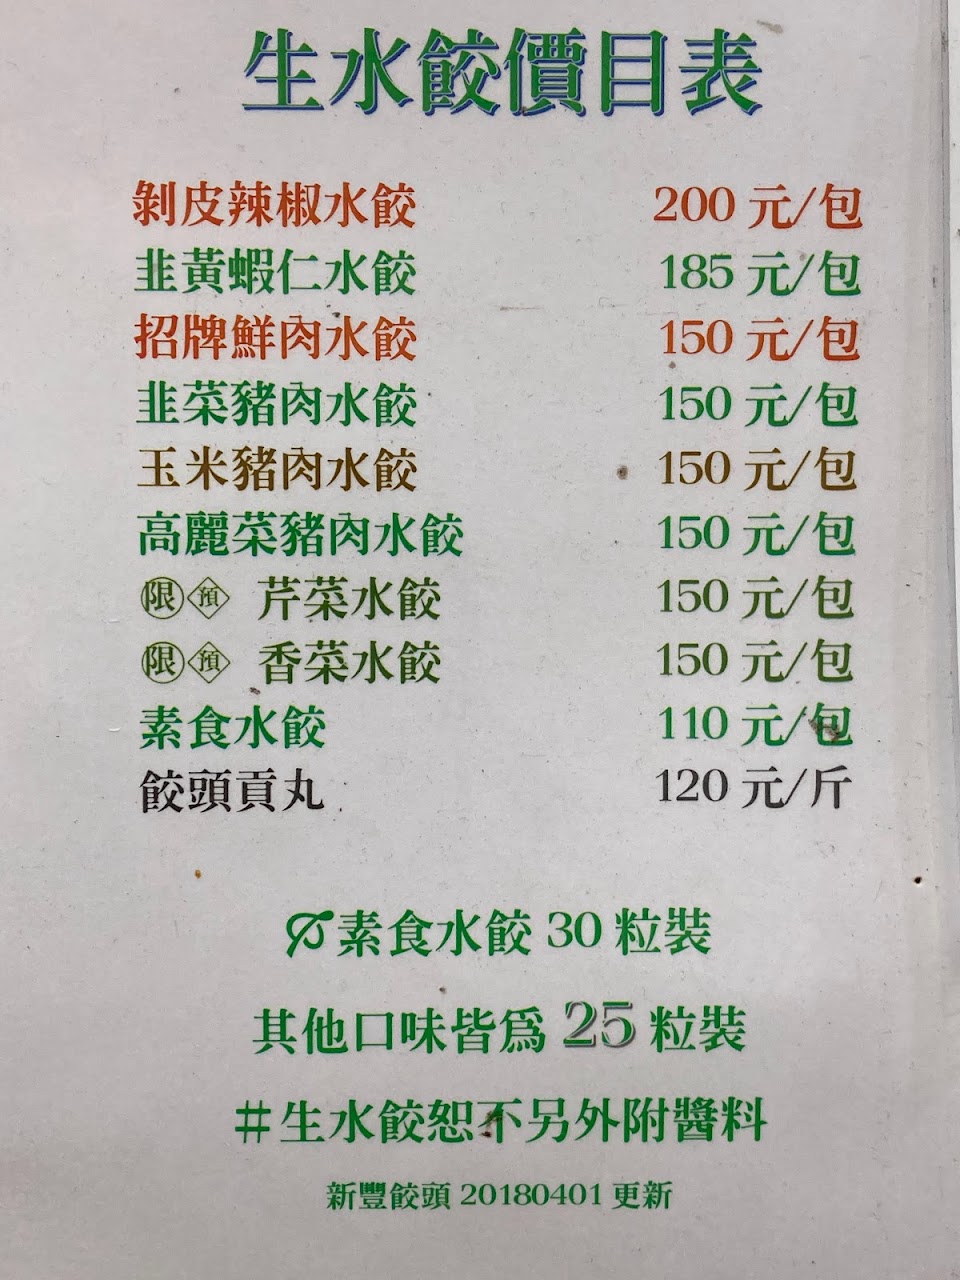 生水餃價目表
剝皮辣椒水餃 200 元/包
韭黃蝦仁水餃 185 元/包
招牌鮮肉水餃 150 元/包
韭菜豬肉水餃 150 元/包
玉米豬肉水餃 150 元/包
高麗菜豬肉水餃 150 元/包
限 預 芹菜水餃 150 元/包
限 預 香菜水餃 150 元/包
素食水餃 110 元/包
餃頭貢丸 120 元/斤
素食水餃 30 粒裝
其他口味皆為 25 粒裝
#生水餃恕不另外附醬料
新豐餃頭 20180401 更新